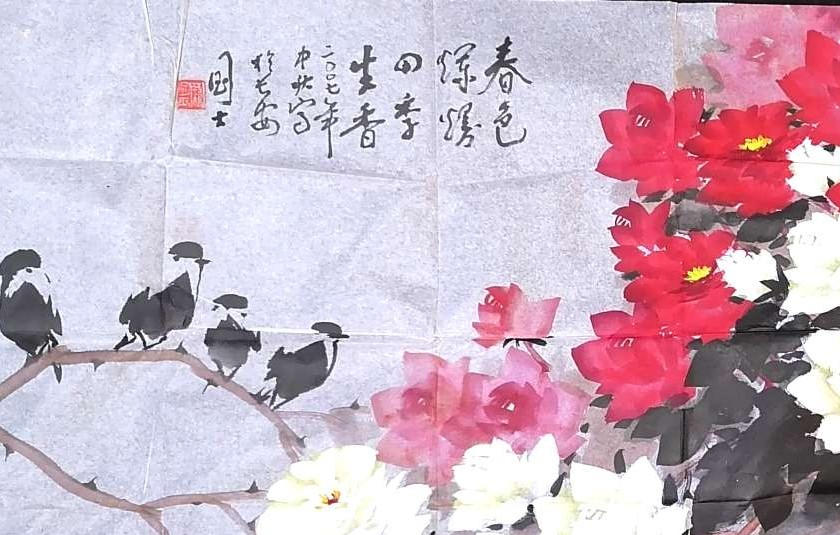 春色
烂漫
四季
生香
二〇〇七年
中秋写
於长安
国士